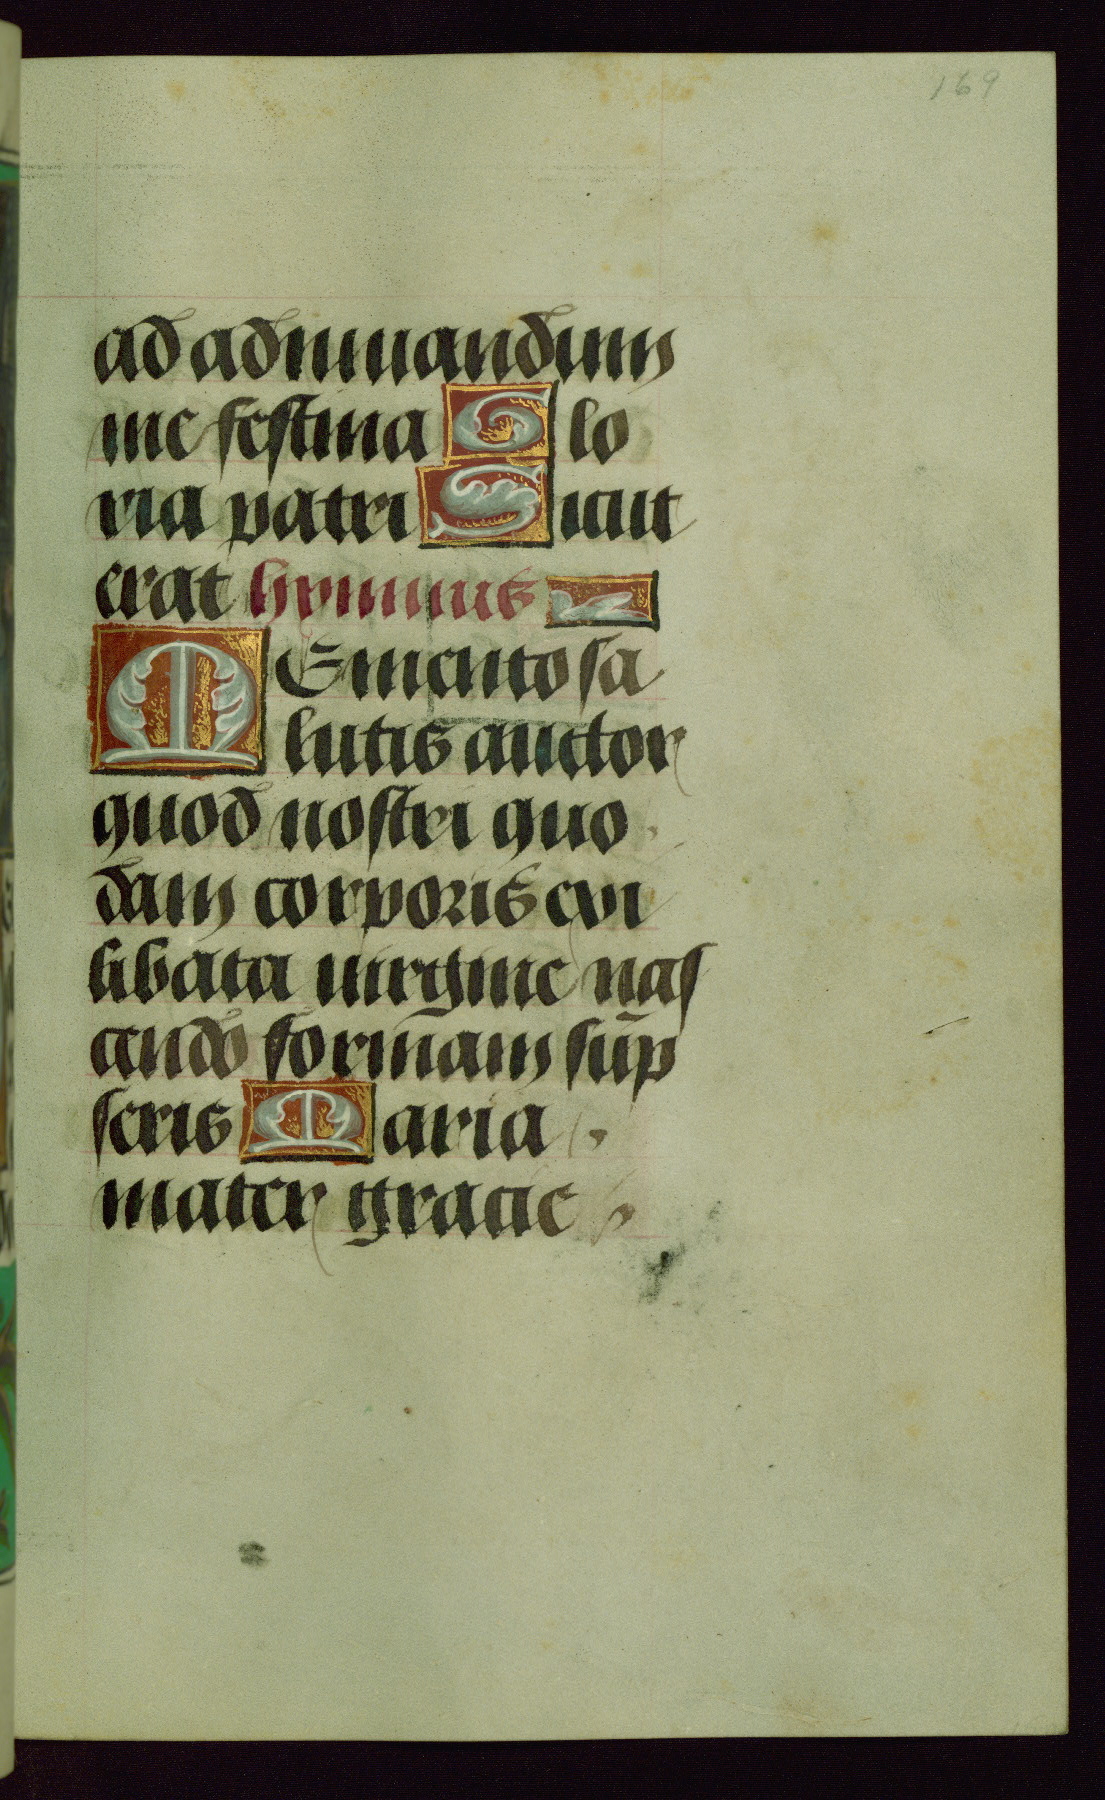 169
ad adiuuandum
me festina Glo
ria patri Sicut
erat hymnus
MEmento sa
lutis auctor
quod nostri quo
dam corporis exi
libata uirgine nas
cendo formam sūp
seris Maria
mater gracie